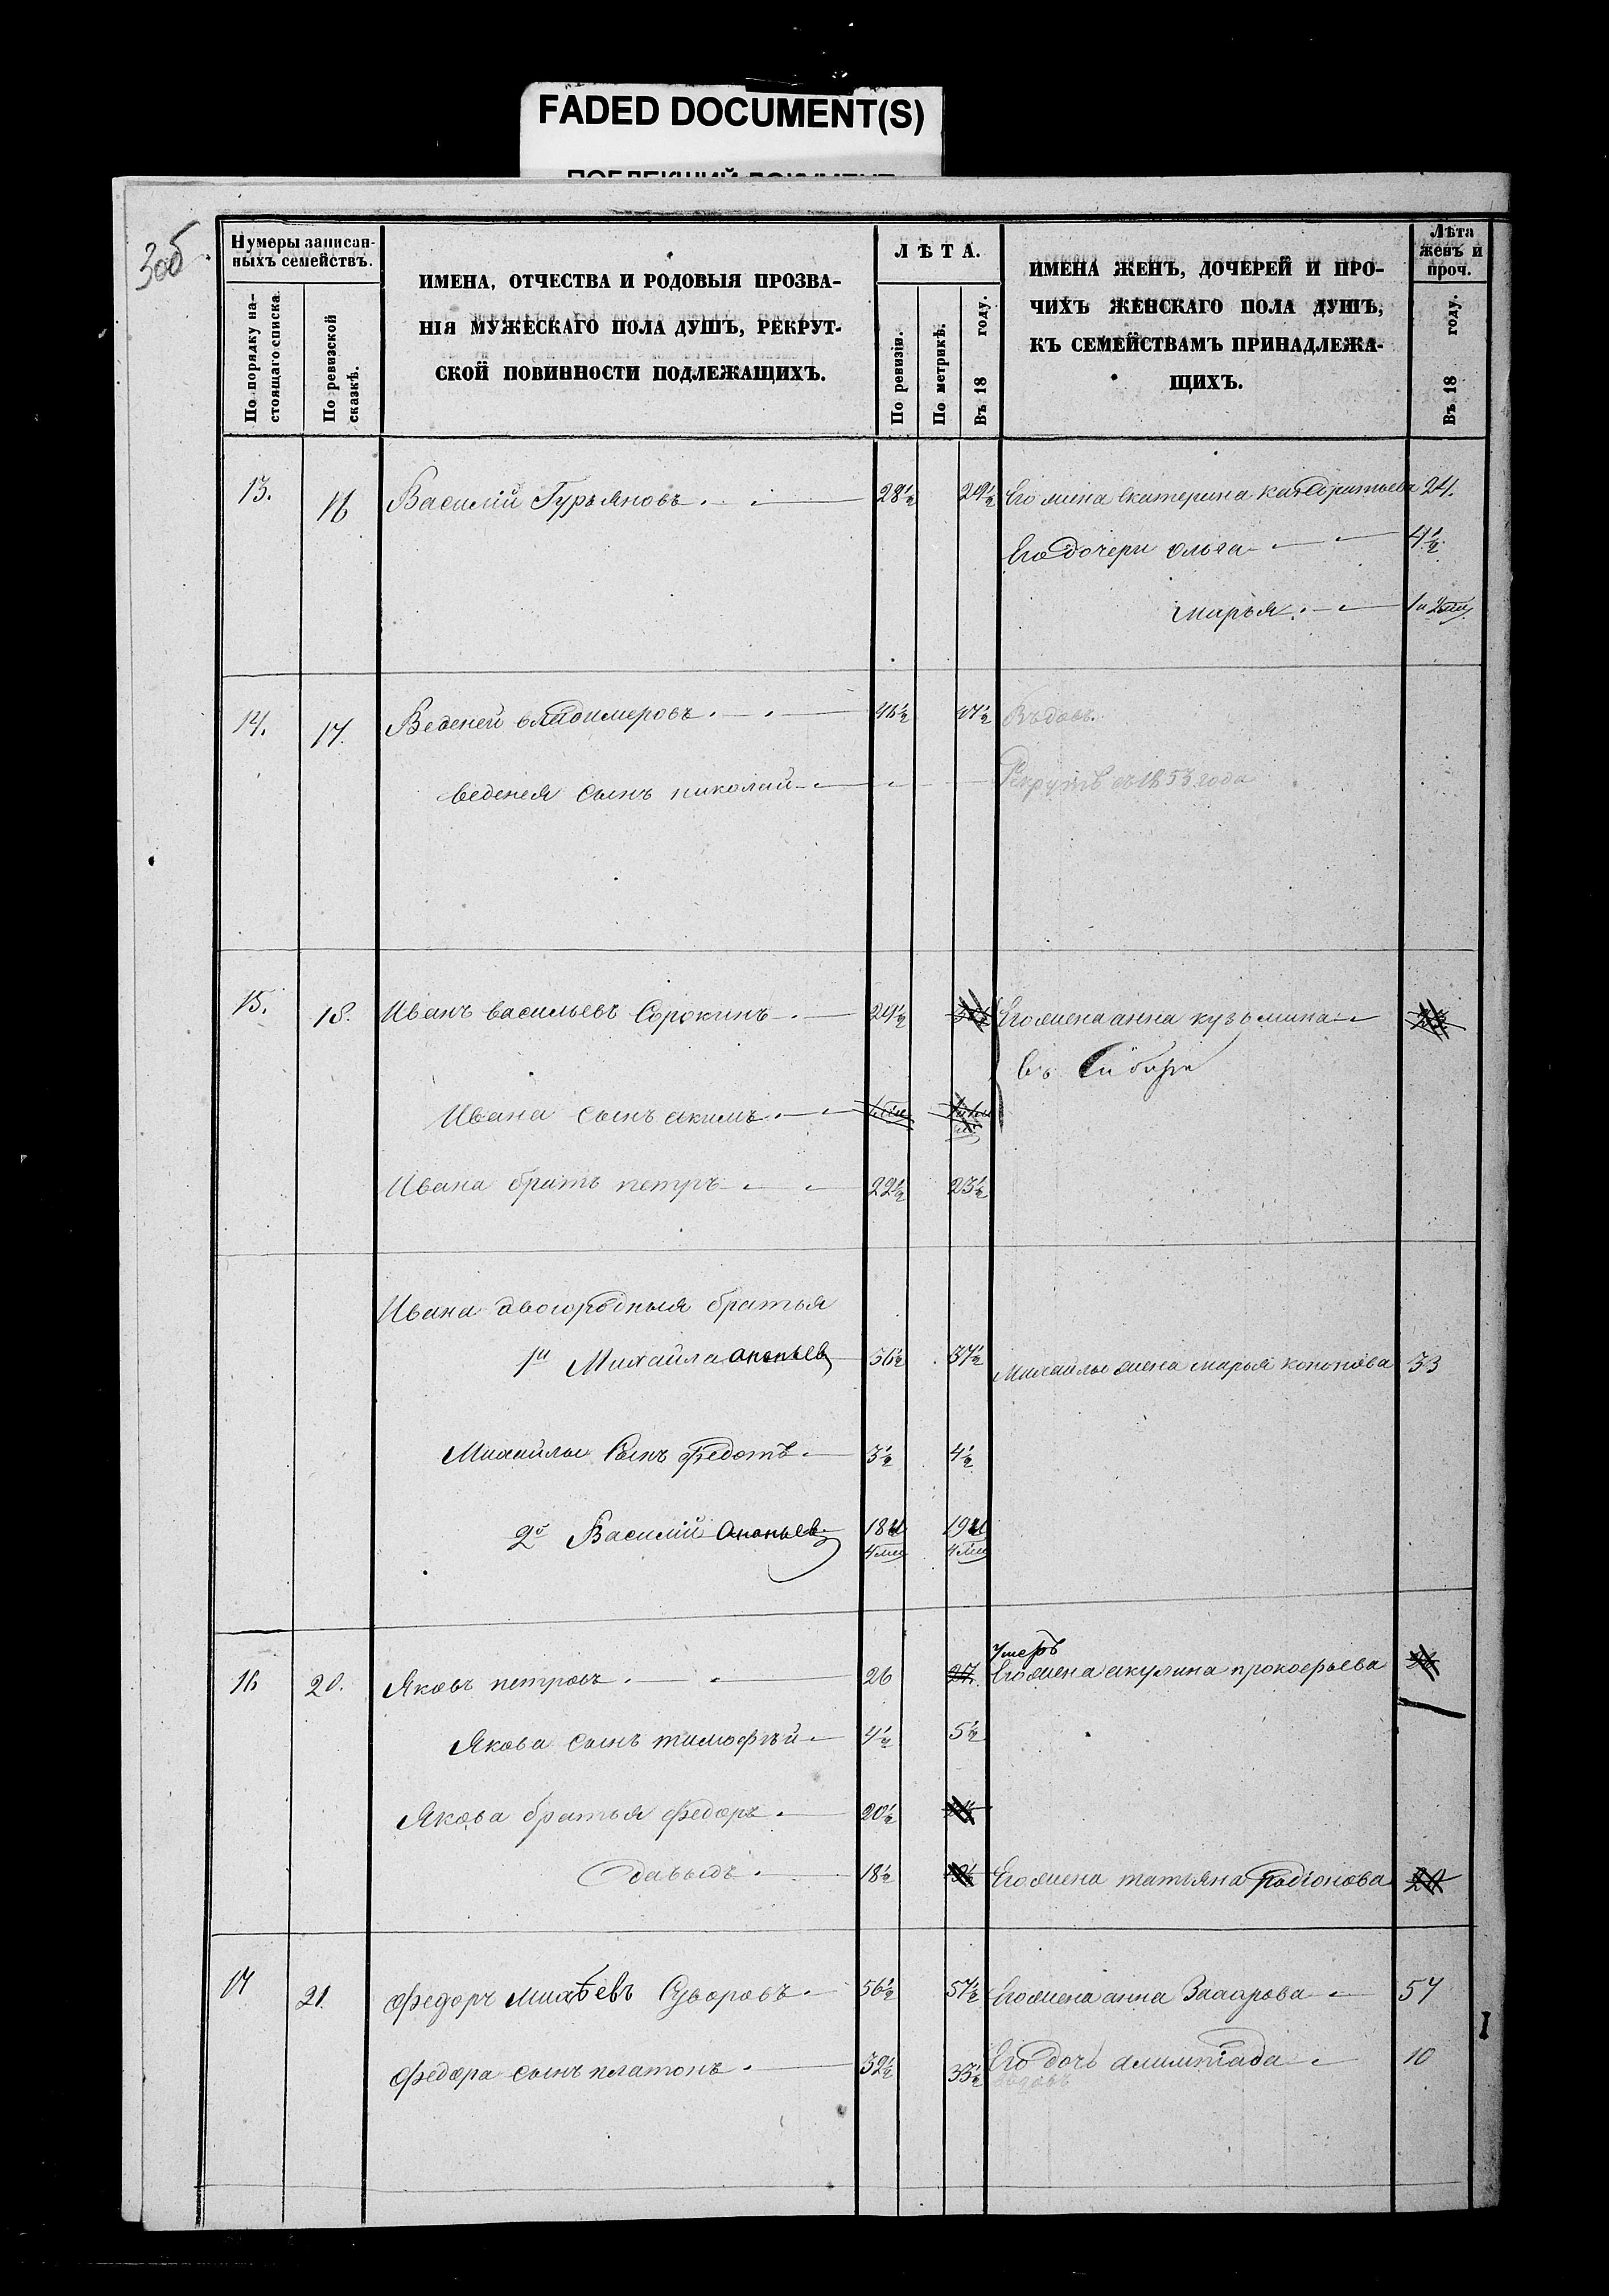 FADED DOCUMENT(S)
30б.
Нумеры записан-
ныхъ семействъ.
По порядку на-
стоящаго списка.
По ревизской
сказкѣ.
ИМЕНА, ОТЧЕСТВА И РОДОВЫЯ ПРОЗВА-
НІЯ МУЖЕСКАГО ПОЛА ДУШЪ, РЕКРУТ-
СКОЙ ПОВИННОСТИ ПОДЛЕЖАЩИХЪ.
ЛѢТА.
По ревизіи.
По метрикѣ.
Въ 18 году.
ИМЕНА ЖЕНЪ, ДОЧЕРЕЙ И ПРО-
ЧИХЪ ЖЕНСКАГО ПОЛА ДУШЪ,
КЪ СЕМЕЙСТВАМЪ ПРИНАДЛЕЖА-
ЩИХЪ.
Лѣта
женъ и
проч.
Въ 18 году.
13. 16 Василій Гурьяновъ 28½ 29½ Его жена екатерина кандратьева 24.
Его дочери ольга 4½
марья
14. 17. Веденей владимеровъ 46½ 47½ Вдовъ.
веденея сынъ николай Рекрутъ съ 1853 года
15. 18. Иванъ васильевъ Сорокинъ 29½ Его жена анна кузьмина
въ Сибири
Ивана сынъ акимъ
Ивана братъ петръ 22½ 23½
Ивана двоюродныя братья
1й Михайла Ананьев 36½ 37½ Михайлы жена марья кононова 33
Михайлы Сынъ Федотъ 3½ 4½
2й Василий Ананьев 18 и 19 и
4 мѣс 4 мѣс
Умеръ
16 20. Яковъ петровъ 26 27. Его жена акулина прокофьева
Якова сынъ тимофѣй 4½ 5½
Якова братья Федоръ 20½
давыдъ 18½ Его жена татьяна Радіонова 20
17 21. Федоръ михѣевъ Суворовъ 56½ 57½ Его жена анна Захарова 57
Федора сынъ платонъ 32½ 33½ Его дочь алимпіада 10
вдовъ